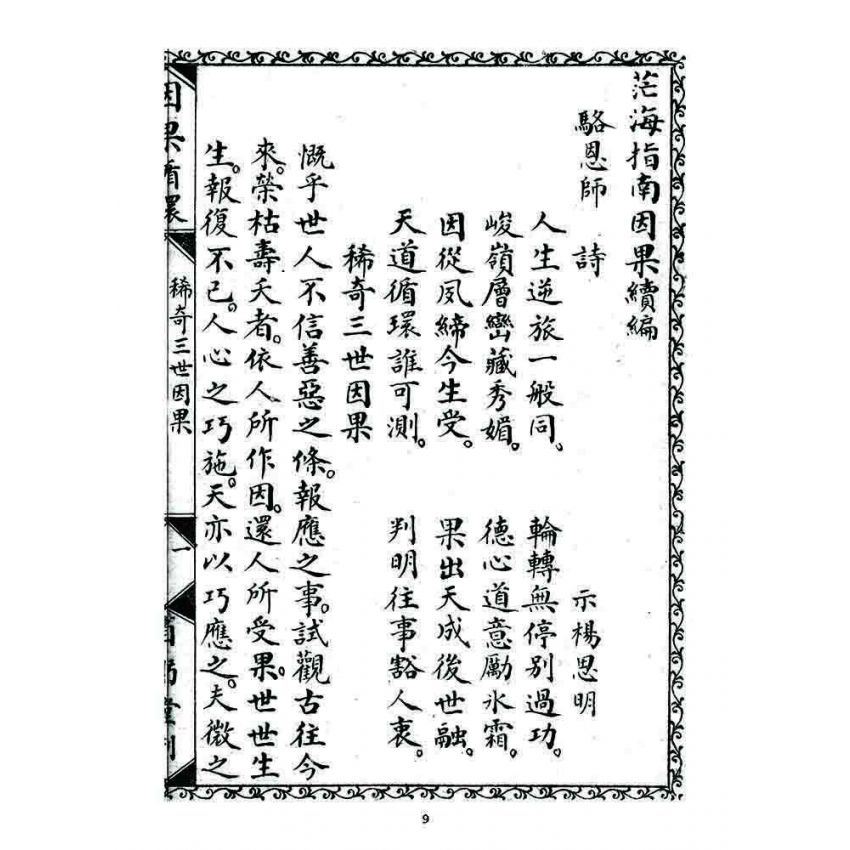 茫海指南因果續編
駱恩師　詩　示楊思明
人生逆旅一般同、輪轉無停別過功。
峻嶺層巒藏秀媚。德心道意勵氷霜。
因從夙締今生受。果出天成後世融。
天道循環誰可測。判明往事豁人衷。
稀奇三世因果
慨乎世人不信善惡之條。報應之事。試觀古往今
來。榮枯壽夭者。依人所作因。還人所受果。世世生
生。報復不已。人心之巧施。天亦以巧應之。夫微之
因果循環
稀奇三世因果
一
9